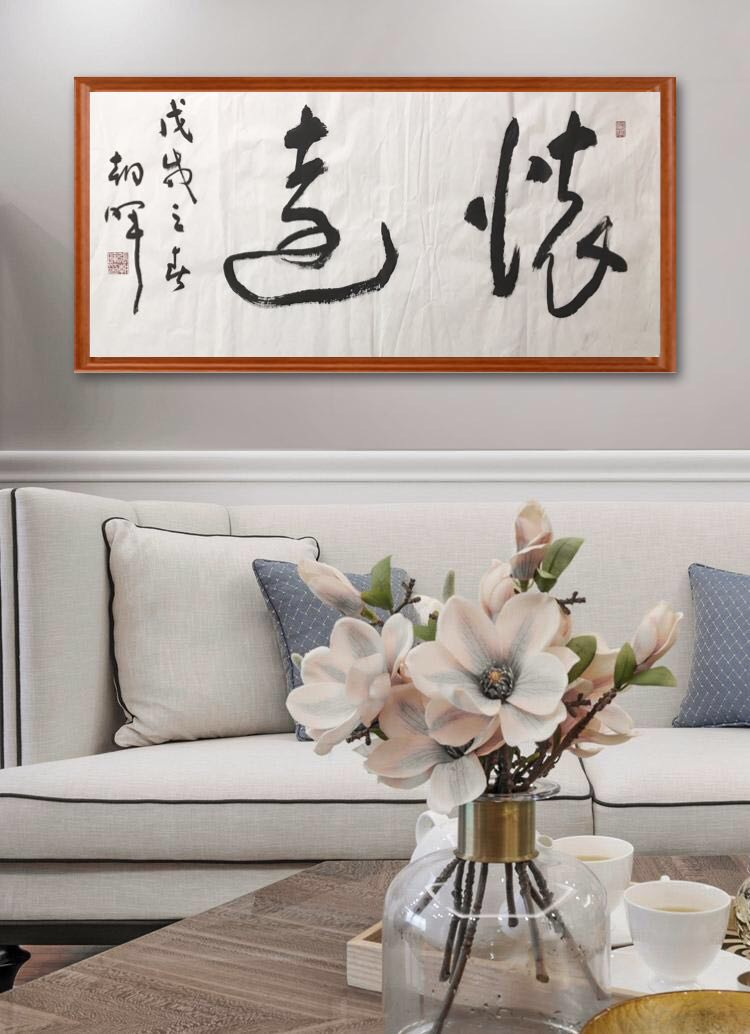 懷遠
戊戌之春
朝暉